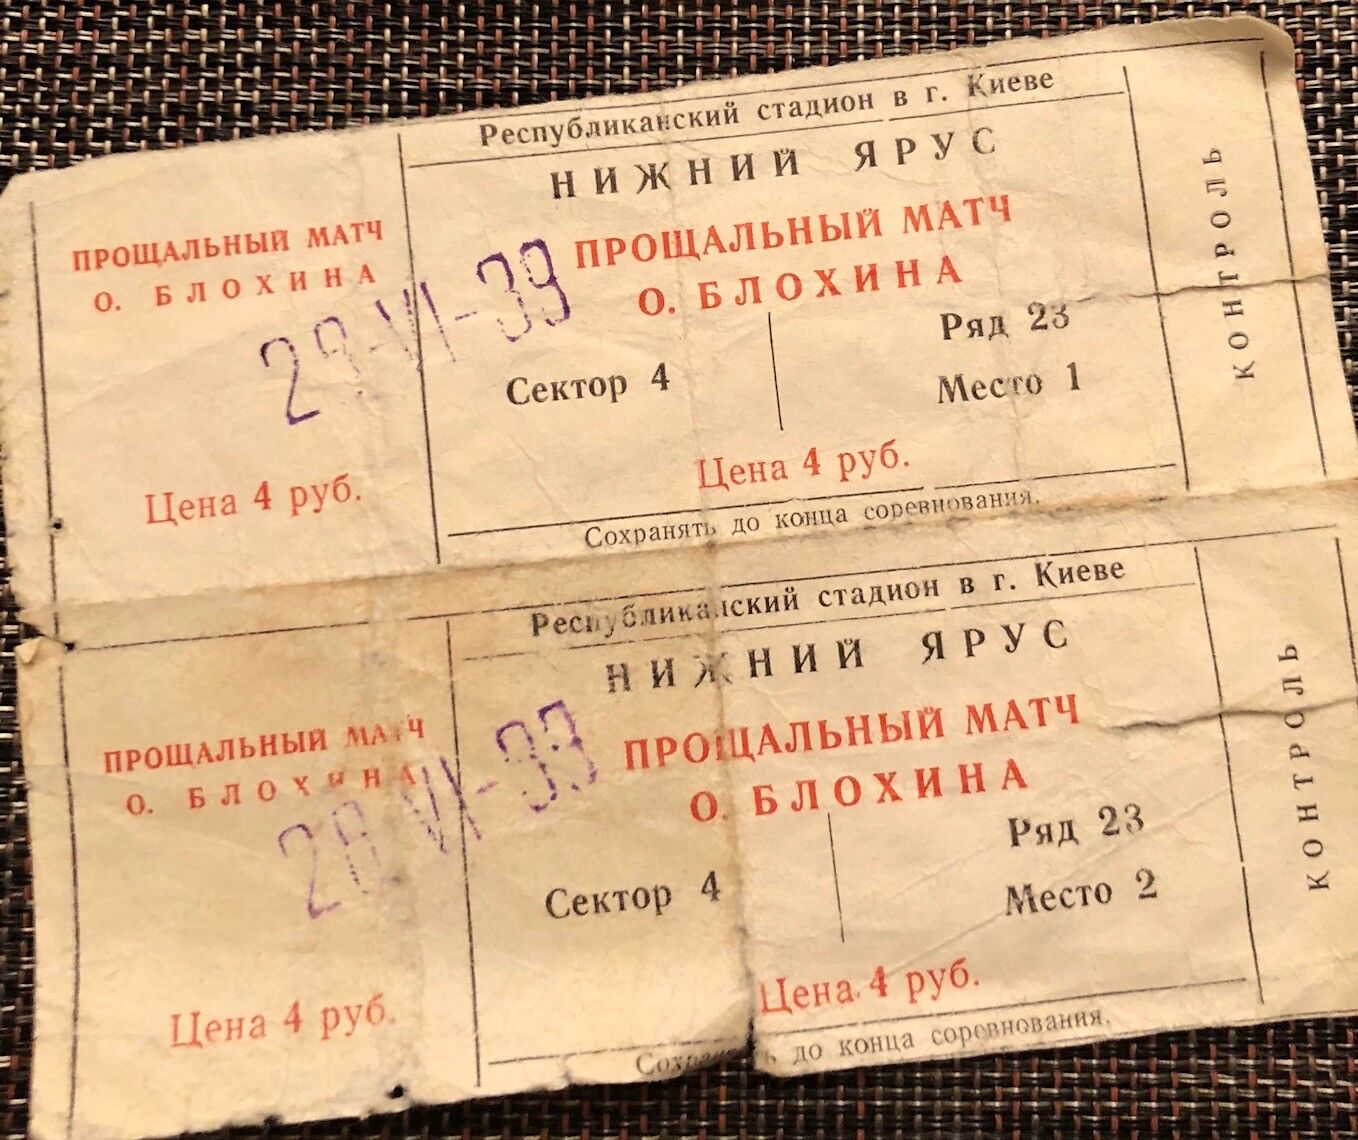 Республиканский стадион в г. Киеве
НИЖНИЙ ЯРУС
ПРОЩАЛЬНЫЙ МАТЧ
О. БЛОХИНА
ПРОЩАЛЬНЫЙ МАТЧ
О. БЛОХИНА
Ряд 23
Сектор 4
Место 1
Цена 4 руб.
Цена 4 руб.
Сохранять до конца соревнования.
КОНТРОЛЬ
Республиканский стадион в г. Киеве
НИЖНИЙ ЯРУС
ПРОЩАЛЬНЫЙ МАТЧ
О. БЛОХИНА
ПРОЩАЛЬНЫЙ МАТЧ
О. БЛОХИНА
Ряд 23
Сектор 4
Место 2
Цена 4 руб.
Цена 4 руб.
Сохранять до конца соревнования.
КОНТРОЛЬ